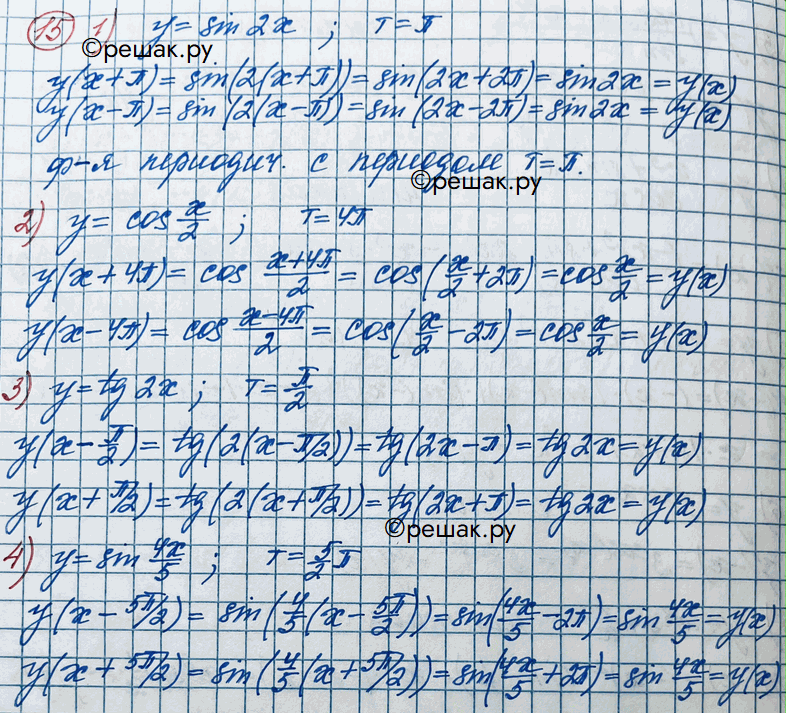 15 1) y = sin 2x ; T = π
©решак.ру
y(x+π) = sin(2(x+π)) = sin(2x+2π) = sin2x = y(x)
y(x-π) = sin(2(x-π)) = sin(2x-2π) = sin2x = y(x)
ф-я периодич. с периодом T=π.
©решак.ру
2) y = cos x/2 ; T = 4π
y(x+4π) = cos (x+4π)/2 = cos(x/2+2π) = cos x/2 = y(x)
y(x-4π) = cos (x-4π)/2 = cos(x/2-2π) = cos x/2 = y(x)
3) y = tg 2x ; T = π/2
y(x-π/2) = tg(2(x-π/2)) = tg(2x-π) = tg2x = y(x)
y(x+π/2) = tg(2(x+π/2)) = tg(2x+π) = tg2x = y(x)
©решак.ру
4) y = sin 4x/5 ; T = 5/2 π
y(x-5π/2) = sin(4/5(x-5π/2)) = sin(4x/5-2π) = sin 4x/5 = y(x)
y(x+5π/2) = sin(4/5(x+5π/2)) = sin(4x/5+2π) = sin 4x/5 = y(x)